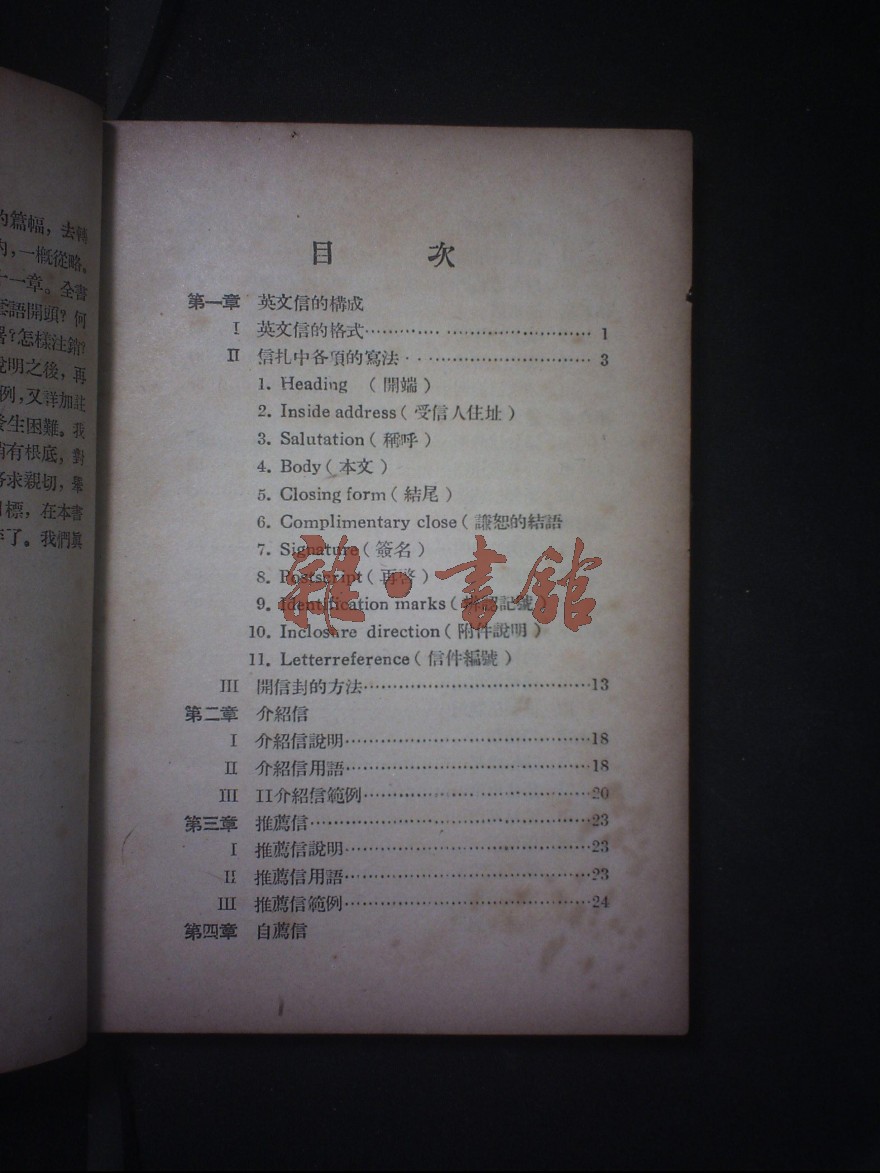 的篇幅，去
一概從略。
十一章。全書
語開頭？何
？怎樣注銷？
說明之後，再
例，又詳加註
發生困難。我
稍有根底，對
求親切，舉
目標，在本書
了。我們眞
目 次
第一章 英文信的構成
I 英文信的格式…………………………………1
II 信扎中各項的寫法…………………………3
1. Heading （開端）
2. Inside address（受信人住址）
3. Salutation（稱呼）
4. Body（本文）
5. Closing form（結尾）
6. Complimentary close（謙恕的結語
7. Signature（簽名）
8. Postscript（再啓）
9. Identification marks（辨認記號）
10. Inclosure direction（附件說明）
11. Letterreference（信件編號）
III 開信封的方法…………………………………13
第二章 介紹信
I 介紹信說明……………………………………18
II 介紹信用語……………………………………18
III II介紹信範例…………………………………20
第三章 推薦信…………………………………………23
I 推薦信說明……………………………………23
II 推薦信用語……………………………………23
III 推薦信範例……………………………………24
第四章 自薦信
雜·書館